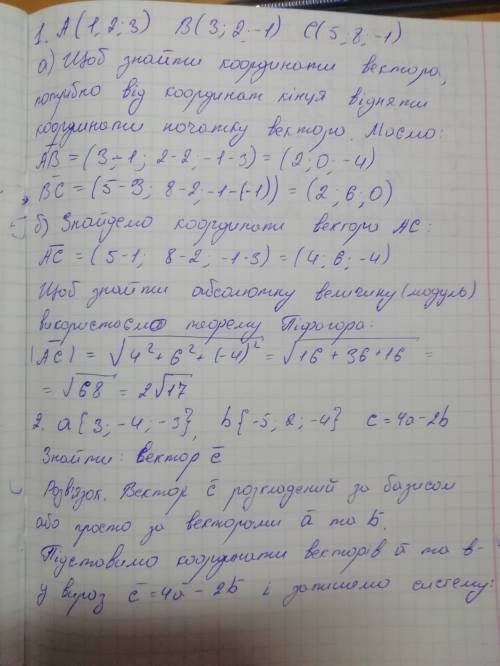 1. A(1; 2; 3) B(3; 2; -1) C(5; 8; -1)
а) Щоб знайти координати вектора,
потрібно від координат кінця відняти
координати початку вектора. Маємо:
AB = (3-1; 2-2; -1-3) = (2; 0; -4)
BC = (5-3; 8-2; -1-(-1)) = (2; 6; 0)
б) Знайдемо координати вектора AC:
AC = (5-1; 8-2; -1-3) = (4; 6; -4)
Щоб знайти абсолютну величину (модуль)
використаємо теорему Піфагора:
|AC| = √4²+6²+(-4)² = √16+36+16 =
= √68 = 2√17
2. a{3; -4; -3}, b{-5; 2; -4} c=4a-2b
Знайти: вектор c
Розв'язок. Вектор c розкладений за базисом
або просто за векторами a та b.
Підставимо координати векторів a та в-
у вираз c=4a-2b і запишемо систему: